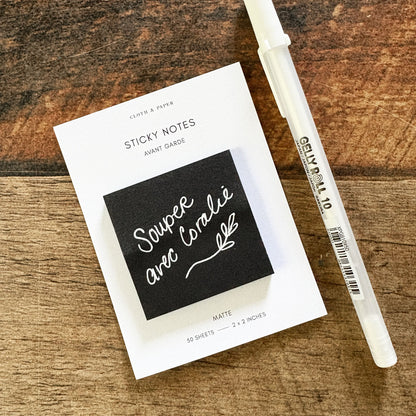 CLOTH & PAPER
STICKY NOTES
AVANT GARDE
Souper
avec Coralie
MATTE
50 SHEETS — 2 x 2 INCHES
GELLY ROLL 10